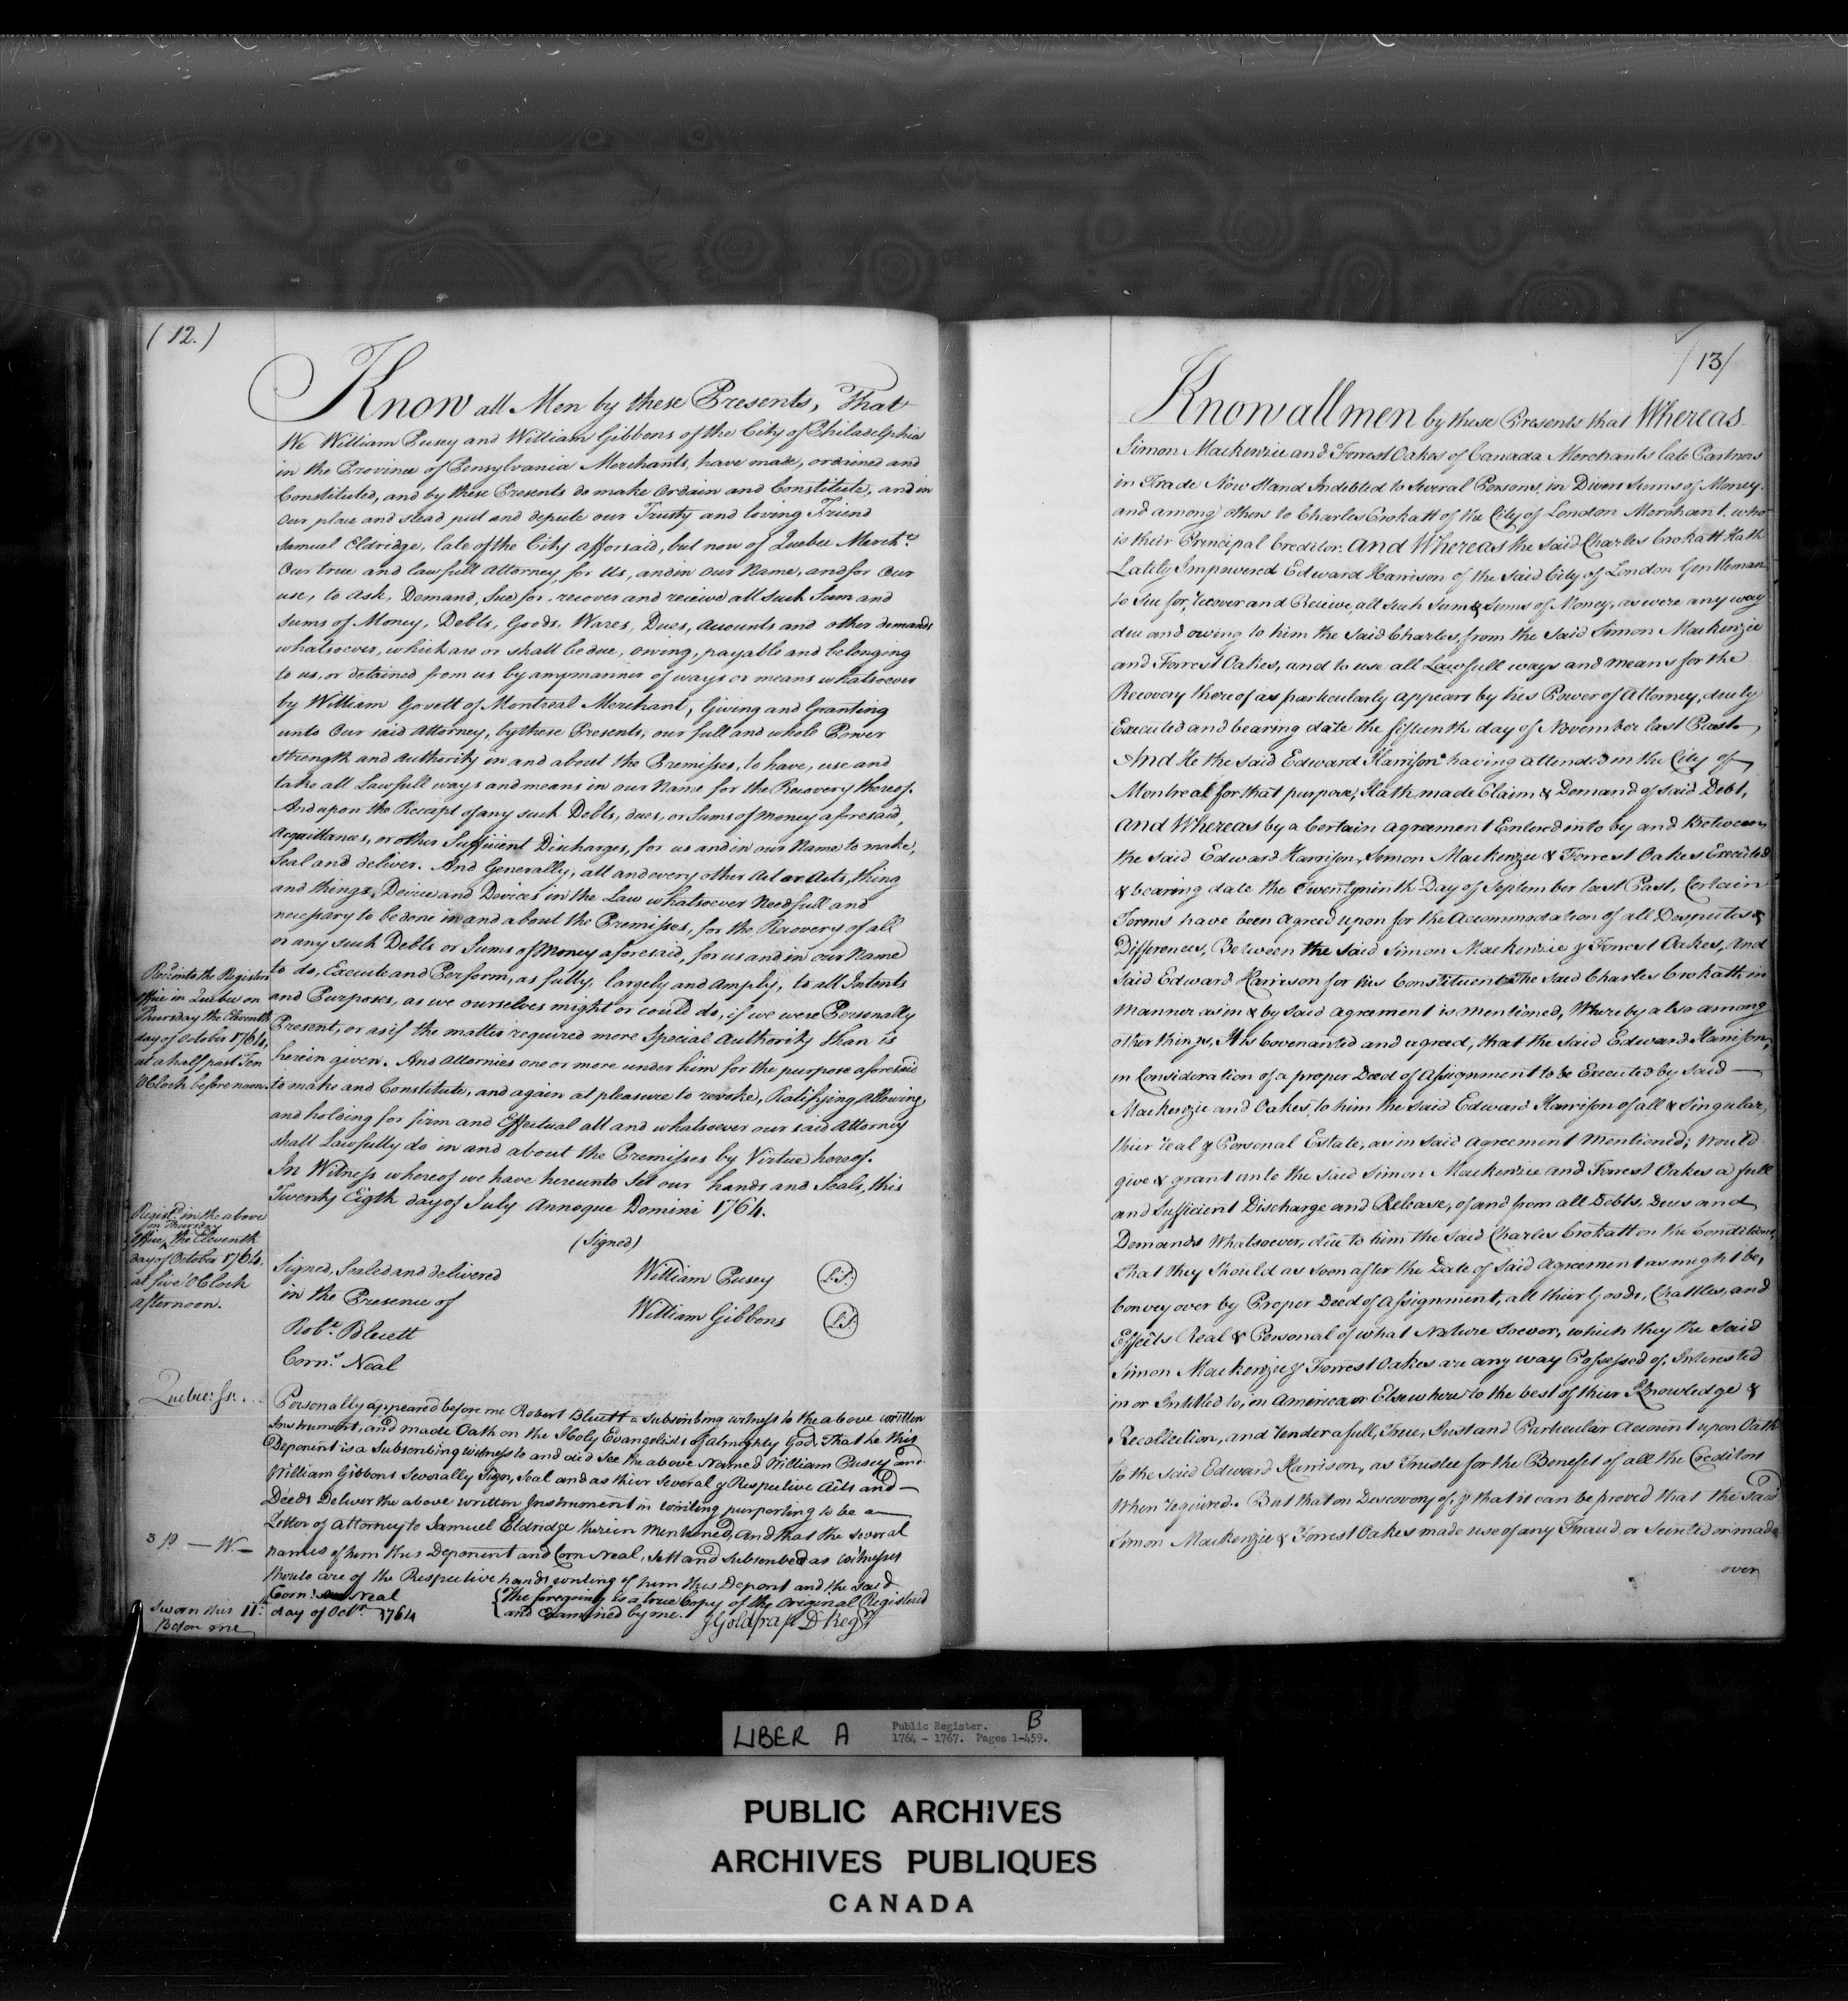 ( 12. )
Know all Men by these Presents, That
We William Pusey and William Gibbons of the City of Philadelphia
in the Province of Pensylvania Merchants, have made, ordained and
Constituted, and by these Presents do make Ordain and Constitute, and in
our place and stead put and depute our Trusty and loving Friend
Samuel Eldridge, late of the City afforsaid, but now of Quebec Merch.t
Our true and lawfull Attorney for Us, and in our Name, and for our
use, to ask, Demand, Sue for, recover and receive all such Sum and
Sums of Money, Debts, Goods, Wares, Dues, Accounts and other demands
whatsoever, which are or shall be due, owing, payable and belonging
to us, or detained from us by any manner of ways or means whatsoever
by William Govett of Montreal Merchant, Giving and Granting
unto Our said Attorney, by these Presents, our full and whole Power
Strength and Authority in and about the Premisses, to have, use and
take all Lawfull ways and means in our Name for the Recovery thereof.
And upon the Receipt of any such Debts, dues, or Sums of Money aforesaid,
Acquittances, or other Sufficient Discharges, for us and in our Name to make,
Seal and deliver. And Generally, all and every other Act or Acts, thing
and things, Device and Devices in the Law whatsoever Needfull and
necessary to be done in and about the Premisses, for the Recovery of all
or any such Debts or Sums of Money aforesaid, for us and in our Name
to do, Execute and Perform, as fully, largely and amply, to all Intents
and Purposes, as we ourselves might or could do, if we were Personally
Present, or as if the matter required more Special Authority than is
herein given. And Attornies one or more under him for the purpose aforesaid
to make and Constitute, and again at pleasure to revoke, Ratifying allowing
and holding for firm and Effectual all and whatsoever our said Attorney
shall Lawfully do in and about the Premisses by Virtue hereof.
In Witness whereof we have hereunto Set our hands and Seals, this
Twenty Eigth day of July Annoque Domini 1764.
(Signed)
Signed, Sealed and delivered
in the Presence of
Rob.t Bluett
Corn.s Neal
William Pusey L.S.
William Gibbons L.S.
Rec.d into the Registers
Office in Quebec on
Thursday the Eleventh
day of October 1764,
at a half past Ten
O'Clock before noon.
Regist.d in the above
Office on Thursday the Eleventh
day of October 1764.
at five O'Clock
afternoon.
Quebec ss.
Personally appeared before me Robert Bluett a Subscribing witness to the above written
Instrument, and made Oath on the Holy Evangelists of almighty God, That he this
Deponent is a Subscribing witness to and did See the above Named William Pusey and
William Gibbons Severally Sign, Seal and as their Several & Respective Acts and
Deeds Deliver the above written Instrument in writing purporting to be a
Letter of Attorney to Samuel Eldridge therein Mentioned, And that the Several
names of him this Deponent and Corn Neal, Sett and Subscribed as witnesses
thereto are of the Respective hands writing of him this Depont and the said
Corn.s Neal
3 p — W. —
Sworn this 11.th day of Oct.r 1764
Before me
The foregoing is a true Copy of the Original Registered
and Examined by me. J Goldfrap D Reg.r
/ 13 /
Know all men by these Presents that Whereas
Simon Mackenzie and Forrest Oakes of Canada Merchants late Partners
in Trade Now Stand Indebted to Several Persons, in Divers Sums of Money.
and among others to Charles Crokatt of the City of London Merchant, who
is their Principal Creditor. And Whereas the said Charles Crokatt Hath
Lately Impowered Edward Harrison of the Said City of London Gentleman
to Sue for, recover and Receive, all such Sum & Sums of Money, as were any way
due and owing to him the Said Charles, from the Said Simon Mackenzie
and Forrest Oakes, and to use all Lawfull ways and means for the
Recovery thereof as particularly appears by his Power of Attorney, duely
Executed and bearing date the fifteenth day of November last Past
And He the said Edward Harrison having attended in the City of
Montreal for that purpose, Hath made Claim & Demand of said Debt,
And Whereas by a Certain agreement Entered into by and Between
the said Edward Harrison, Simon Mackenzie & Forrest Oakes Executed
& bearing date the Twentyninth Day of September last Past, Certain
Terms have been agreed upon for the Accommodation of all Desputes &
Differences, Between the said Simon Mackenzie & Forrest Oakes, And
Said Edward Harrison for his Constituent The Said Charles Crokatt in
Manner as in & by Said agreement is mentioned, Whereby also among
other things, It is Covenanted and agreed, that the said Edward Harrison,
in Consideration of a proper Deed of Assignment to be Executed by said
Mackenzie and Oakes, to him the said Edward Harrison of all & Singular,
their real & Personal Estate, as in said agreement Mentioned; Would
give & grant unto the said Simon Mackenzie and Forrest Oakes a full
and Sufficient Discharge and Release, of and from all Debts, Dues and
Demands Whatsoever, due to him the Said Charles Crokatt on the Conditions,
that they should as soon after the Date of said Agreement as might be,
Convey over by Proper Deed of Assignment, all their Goods, Chattles, and
Effects Real & Personal of what Nature Soever, which they the said
Simon Mackenzie & Forrest Oakes are any way Possessed of, Interested
in or Intitled to, in America or Elsewhere to the best of their Knowledge &
Recollection, and render a full, True, Just and Particular Account upon Oath
to the said Edward Harrison, as Trustee for the Benefit of all the Creditors
When required. But that on Descovery of, & that it can be proved that the said
Simon Mackenzie & Forrest Oakes made use of any Fraud, or Secreted or made
over
LIBER A
Public Register. B
1764 - 1767. Pages 1-459.
PUBLIC ARCHIVES
ARCHIVES PUBLIQUES
CANADA